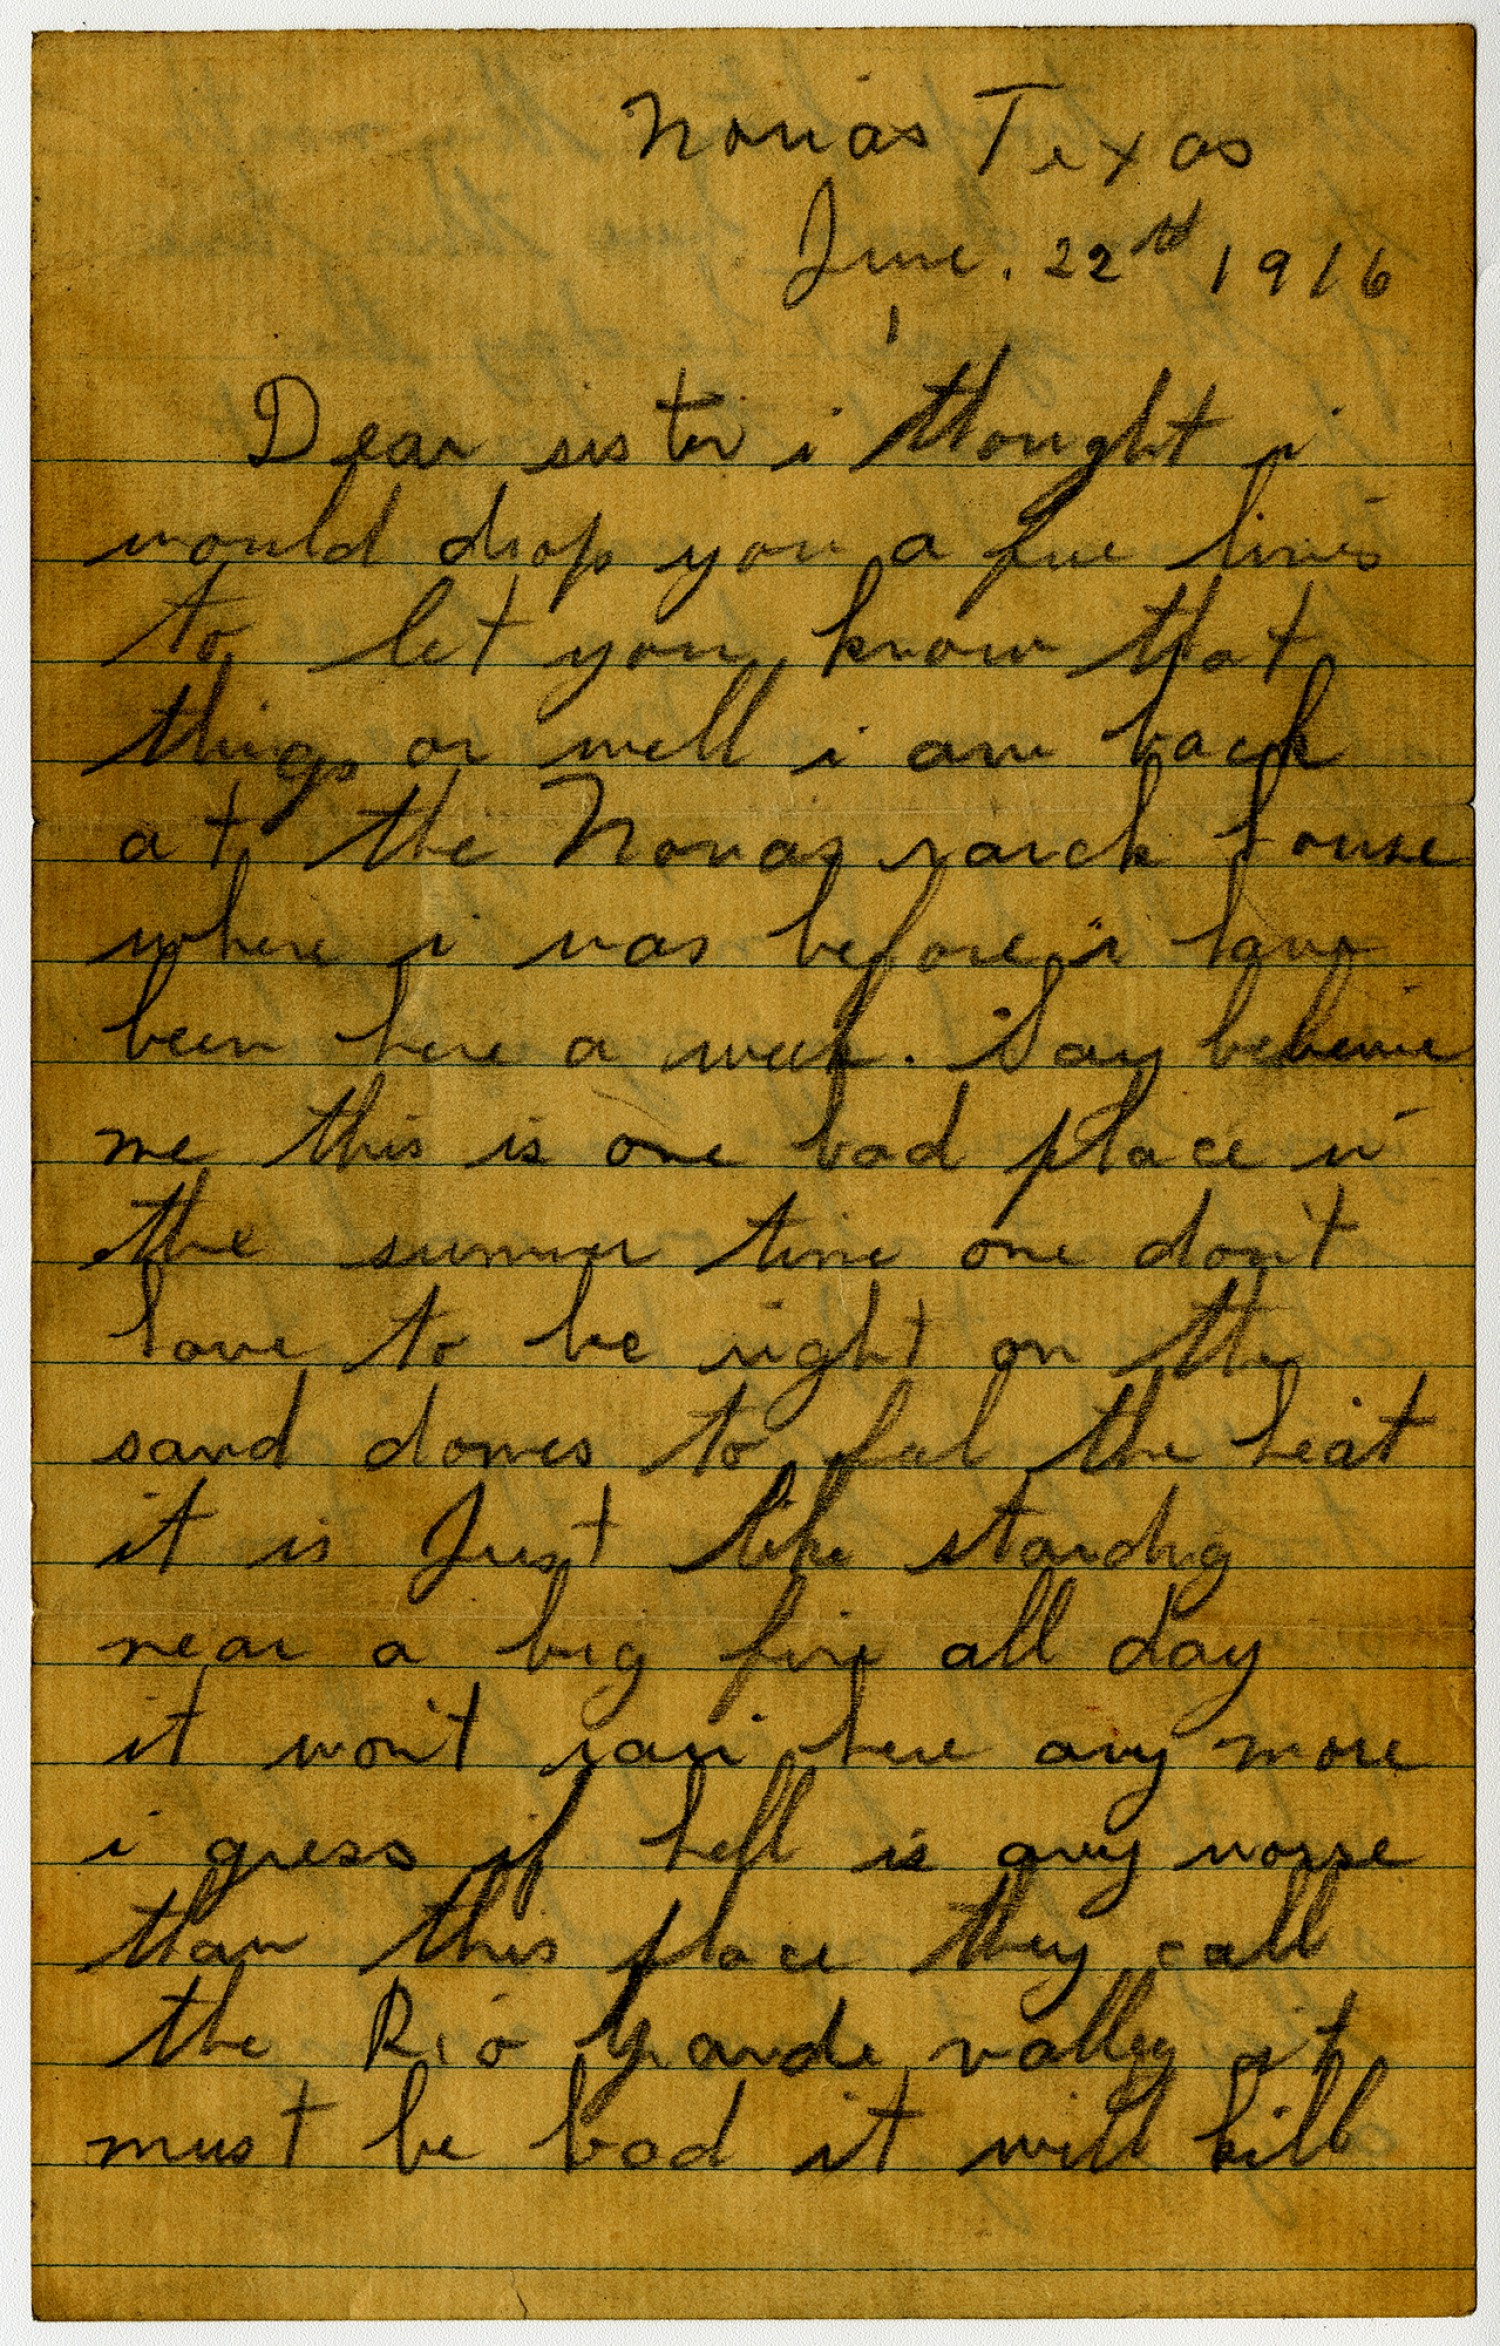 Norias Texas
June. 22nd 1916
1
Dear sister i thought i
would drop you a fue lines
to let you know that
things or well i am back
at the Norias ranch house
where i was before i have
been here a week. Say beleive
me this is one bad place in
the summer time one don't
have to be right on the
sand domes to feel the heat
it is Just like standig
near a big fire all day
it won't rain here any more
i gess if hell is any worse
than this place they call
the Rio grande valley it
must be bad it will kill